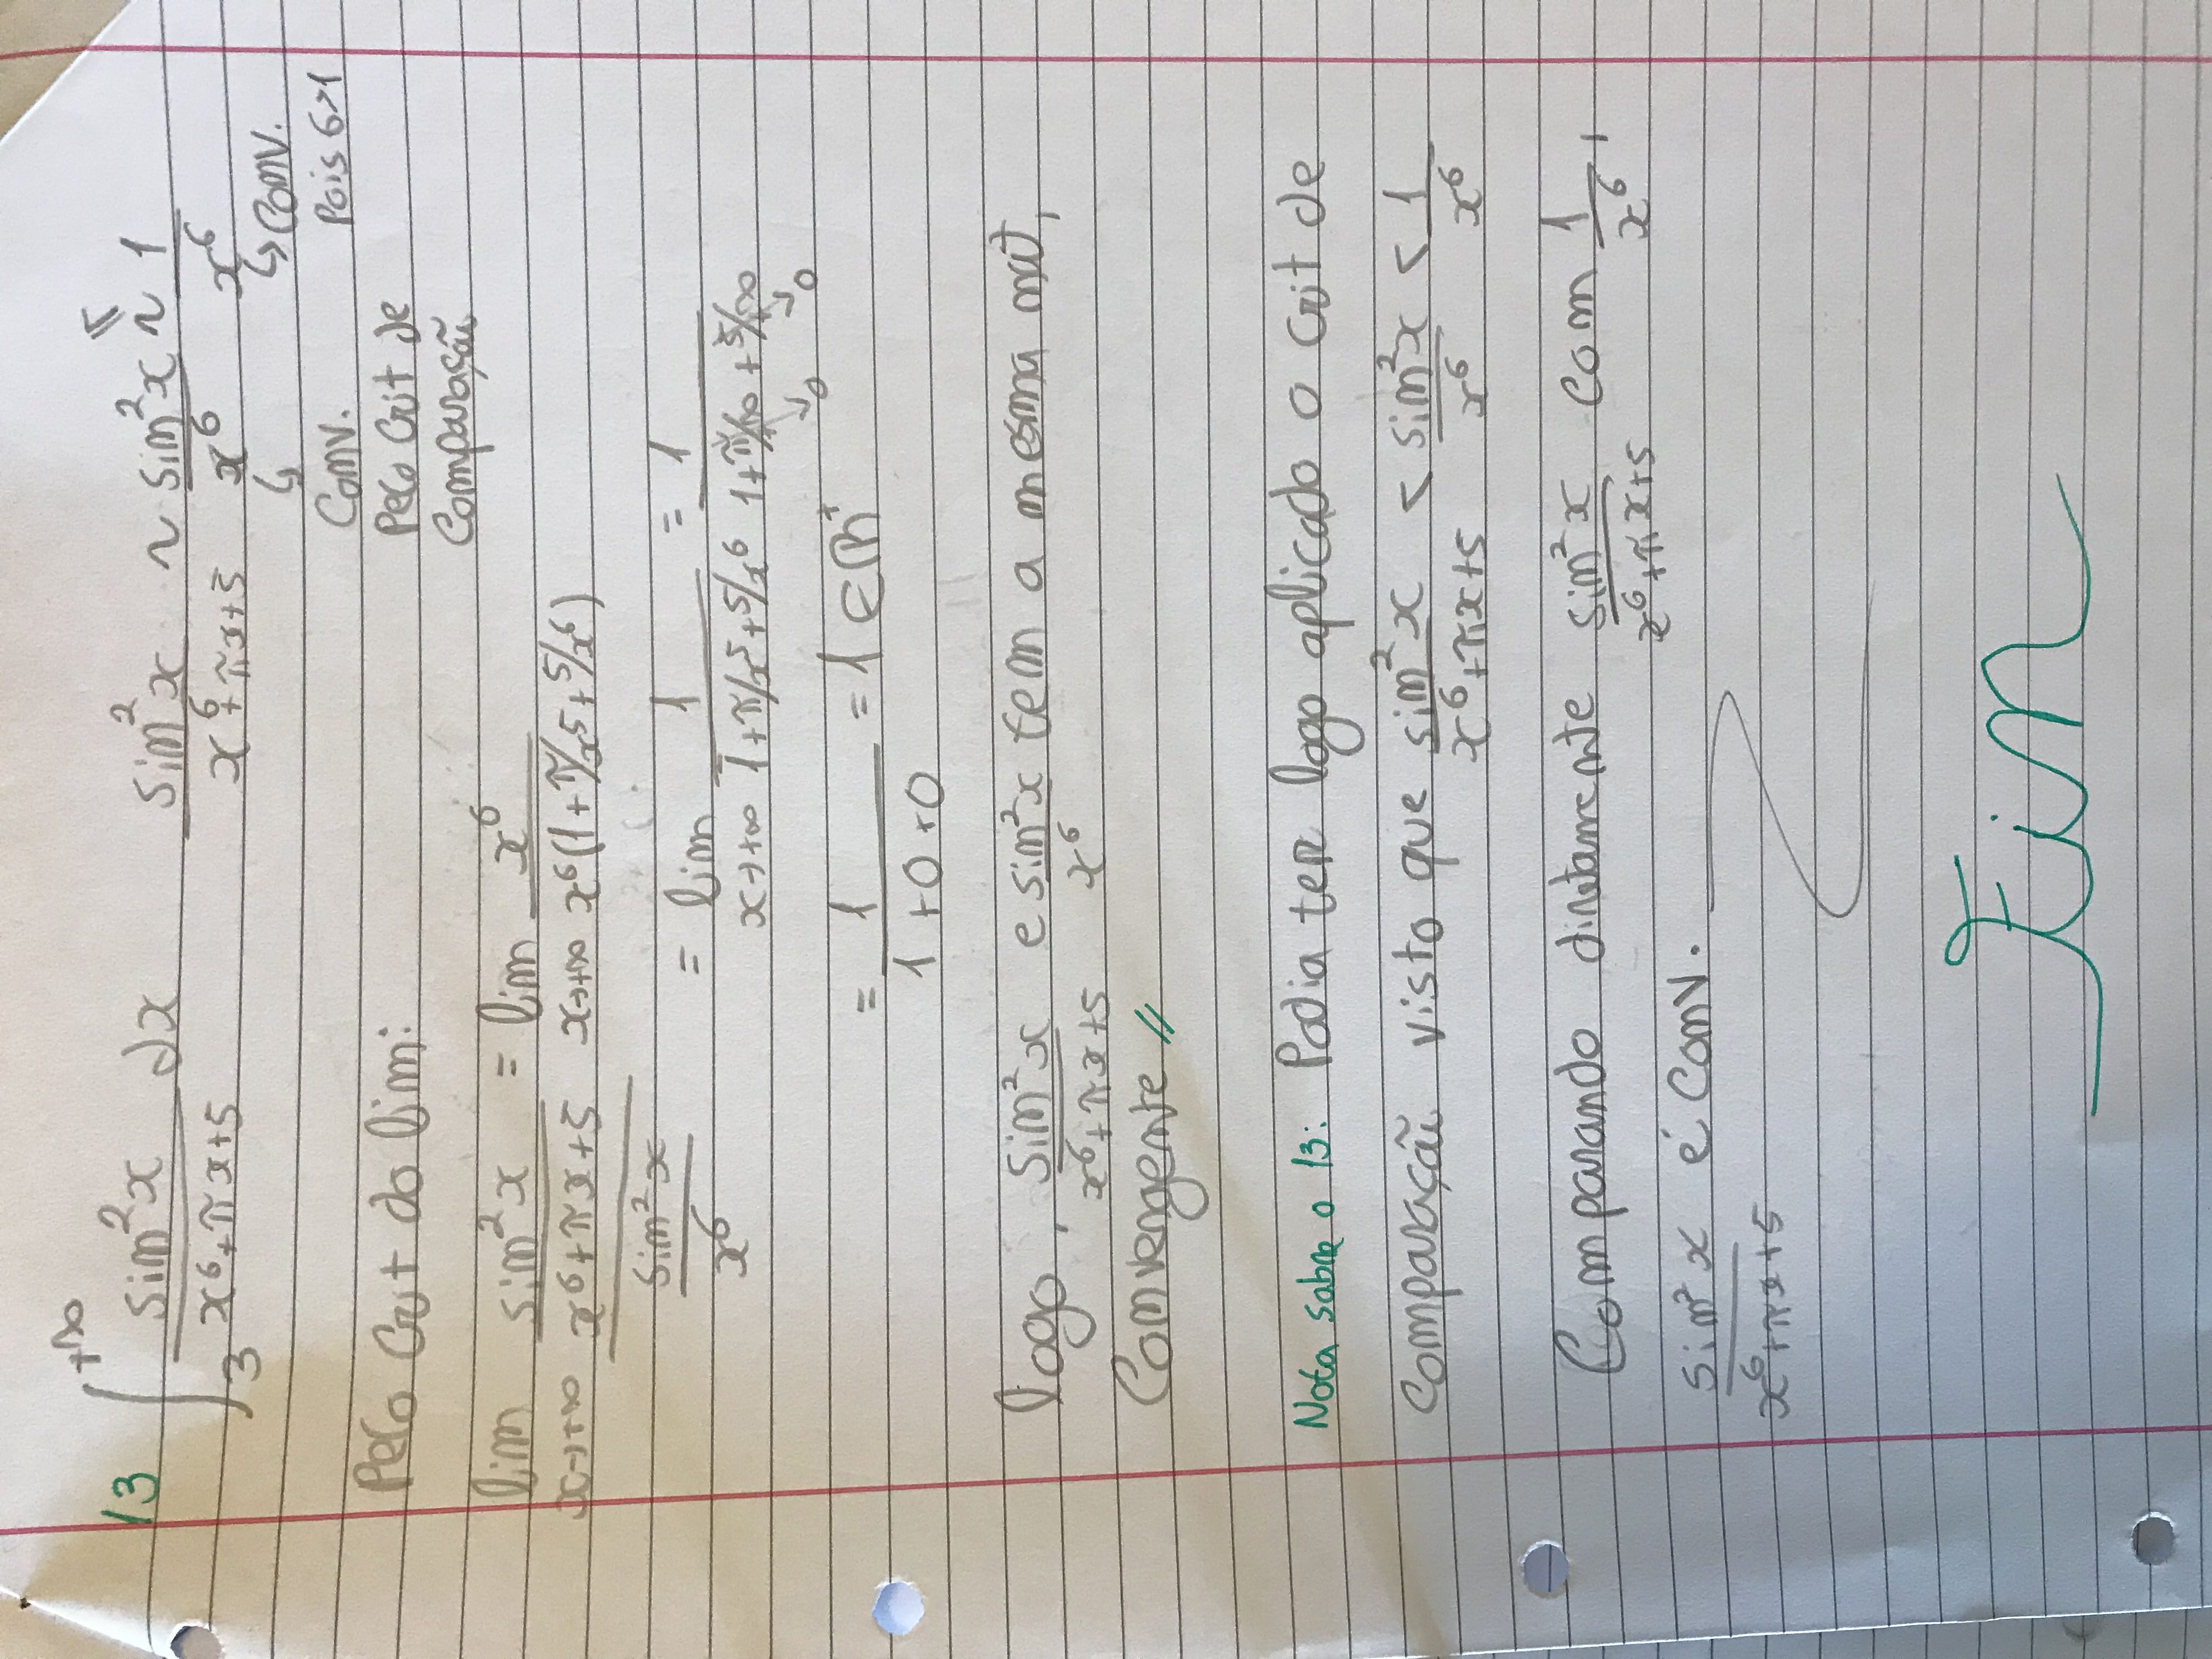 13 ∫₃^{+∞} sin²x/(x⁶+πx+5) dx   sin²x/(x⁶+πx+5) ~ sin²x/x⁶ ≤ 1/x⁶
↳ Conv. Pelo Crit de Comparação
↳ Conv. Pois 6>1
Pelo Crit do lim:
lim x→+∞ (sin²x/(x⁶+πx+5))/(sin²x/x⁶) = lim x→+∞ x⁶/(x⁶(1+π/x⁵+5/x⁶))
= lim x→+∞ 1/(1+π/x⁵+5/x⁶) = 1/(1+π/∞+5/∞) ↘0 ↘0
= 1/(1+0+0) = 1 ∈ ℝ⁺
logo, sin²x/(x⁶+πx+5) e sin²x/x⁶ tem a mesma nat,
Convergente //
Nota sobre o 13: Podia ter logo aplicado o Crit de
Comparação visto que sin²x/(x⁶+πx+5) < sin²x/x⁶ < 1/x⁶
Comparando diretamente sin²x/(x⁶+πx+5) com 1/x⁶,
sin²x/(x⁶+πx+5) é Conv.
Fin